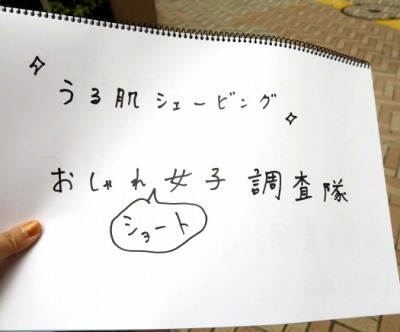 うる肌シェービング
おしゃれ女子調査隊
ショート